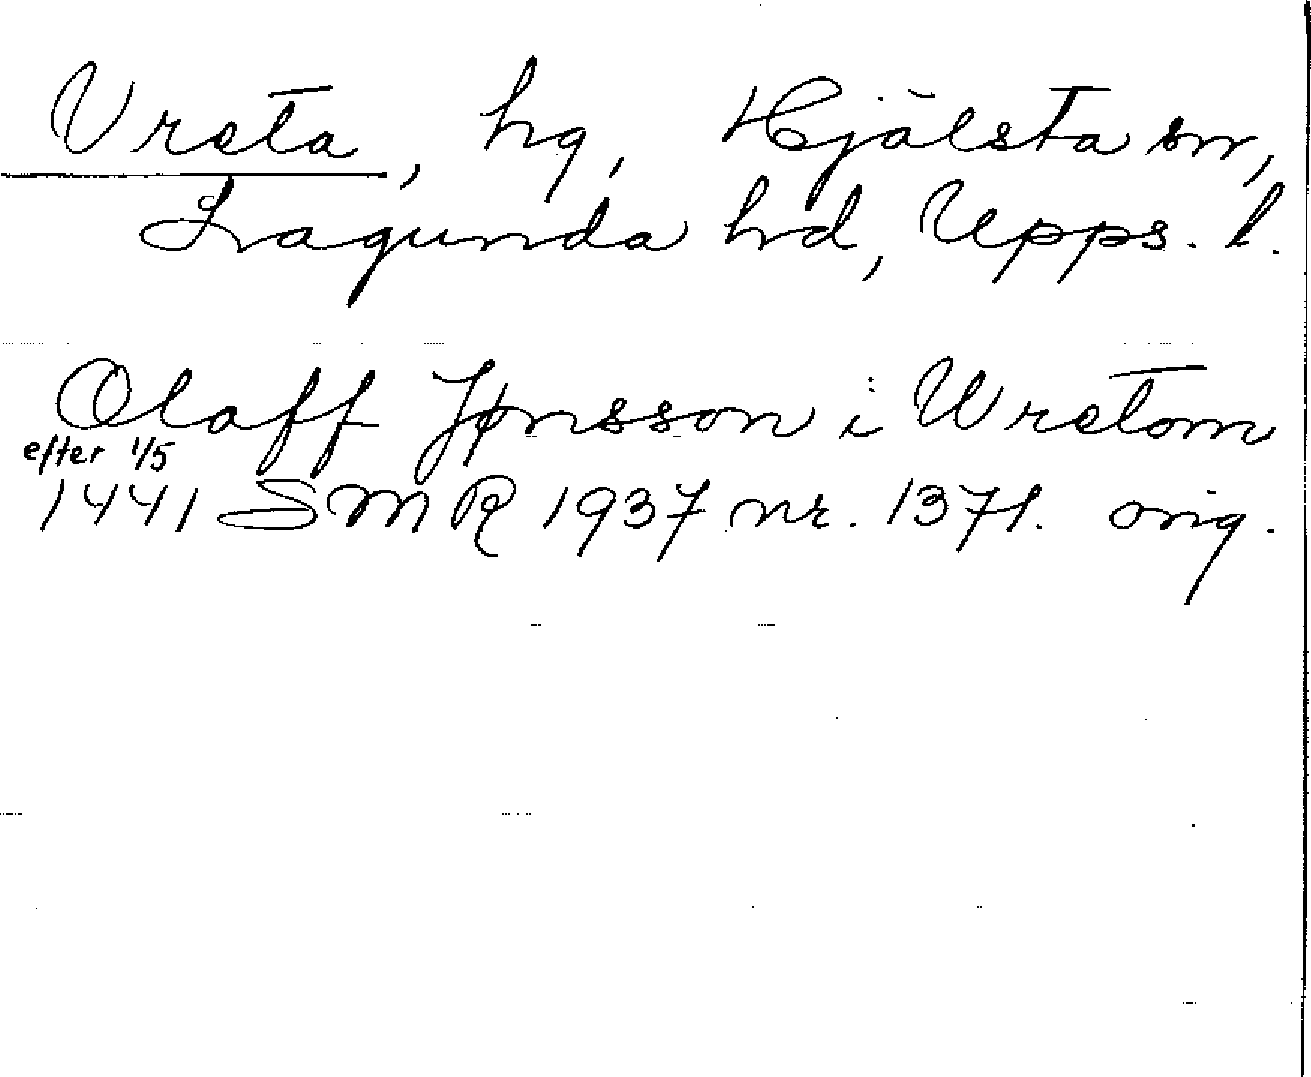 Vreta, hg, Hjälsta sn,
Lagunda hd, Upps. l.
Olaff Jønsson i Wretom
efter 1/5
1441 SMR 1937 nr. 1371. orig.